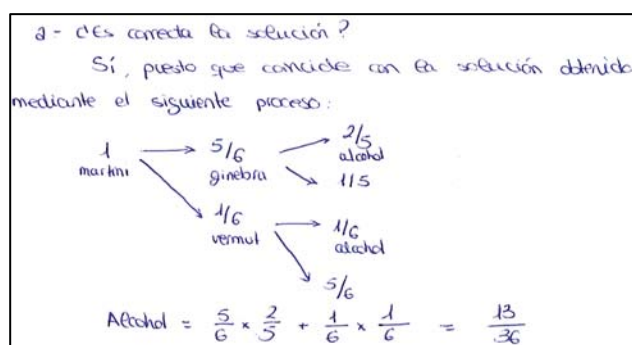 a- ¿Es correcta la solución?
Sí, puesto que coincide con la solución obtenida
mediante el siguiente proceso:
1 martini → 5/6 ginebra → 2/5 alcohol
→ 1/5
→ 1/6 vermut → 1/6 alcohol
→ 5/6
Alcohol = 5/6 × 2/5 + 1/6 × 1/6 = 13/36